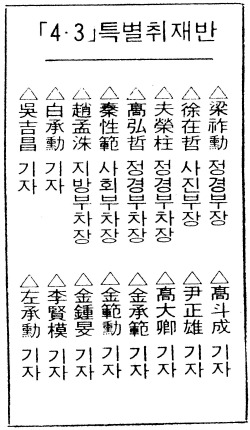 「4·3」특별취재반
△梁祚勳 정경부장
△徐在哲 사진부장
△夫榮柱 정경부차장
△高弘哲 정경부차장
△秦性範 사회부차장
△趙孟洙 지방부차장
△白承勳 기자
△吳吉昌 기자
△高斗成 기자
△尹正雄 기자
△高大卿 기자
△金承範 기자
△金範勳 기자
△金鍾旻 기자
△李賢模 기자
△左承勳 기자